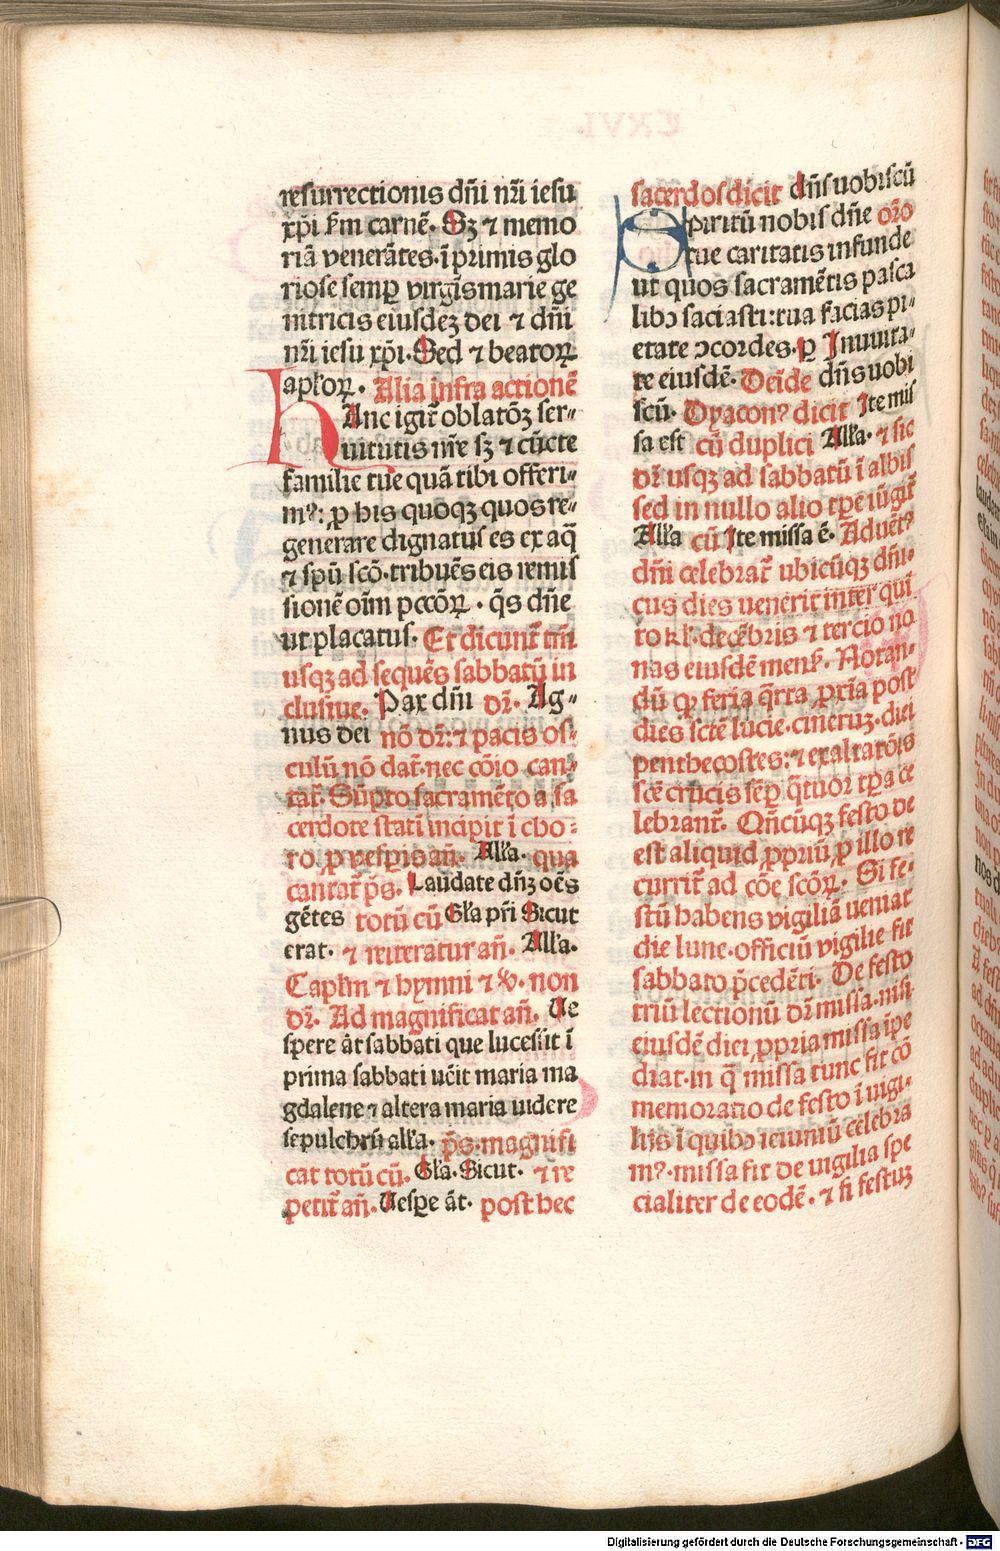 resurrectionis dñi nr̃i iesu
xp̃i ẜm carnẽ. Sꝫ ⁊ memo
riã venerãtes. ĩ primis glo
riose semꝑ virgĩs marie ge
nitricis eiusdeꝫ dei ⁊ dñi
nr̃i iesu xp̃i. Sed ⁊ beatoꝝ
apl'oꝝ. Alia infra actionẽ
HAnc igit̃ oblatõꝫ ser-
uitutis nr̃e sꝫ ⁊ cũcte
familie tue quã tibi offeri-
mꝰ: ꝓ his quoqꝫ quos re-
generare dignatus es ex aq̃
⁊ spũ scõ. tribuẽs eis remis
sionẽ oĩm pccõꝝ. q̃s dñe
ut placatus. Et dicunt̃ tm̃
usqꝫ ad sequẽs sabbatũ in
clusiue. Pax dñi dr̃. Ag-
nus dei nõ dr̃: ⁊ pacis os-
culũ nõ dat̃. nec cõio can-
tat̃. Sũpto sacramẽto a sa
cerdote statĩ incipit ĩ cho-
ro, ꝓ vesꝑis añ. All'a. qua
cantat̃ p̃s. Laudate dñꝫ oẽs
gẽtes totũ cũ Gl'a pr̃i Sicut
erat. ⁊ reiteratur añ. All'a.
Capl'm ⁊ hymni ⁊ ℣. non
dr̃. Ad magnificat añ. Ue
spere ãt sabbati que lucessit ĩ
prima sabbati uẽit maria ma
gdalene ⁊ altera maria uidere
sepulchrũ all'a. p̃s. magnifi
cat totũ cũ. Gl'a. Sicut. ⁊ re
petit̃ añ. Uesꝑe ãt. post hec
sacerdos dicit dñs uobiscũ
SPiritũ nobis dñe or̃o
tue caritatis infunde
ut quos sacramẽtis pasca
libꝰ saciasti: tua facias pi-
etate ↄcordes. ꝑ Inuuita-
te eiusdẽ. Deĩde dñs uobi
scũ. Dyaconꝰ dicit Ite mis
sa est cũ duplici All'a. ⁊ sic
dr̃ usqꝫ ad sabbatũ ĩ albis
sed in nullo alio tp̃e iũgit̃
All'a cũ Ite missa ẽ. Aduẽtꝰ
dñi celebrat̃ ubicũqꝫ dñi-
cus dies uenerit inter quĩ
to kl'. decẽbris ⁊ tercio no
nas eiusdẽ mens'. Notan-
dũ ꝙ feria q̃rta ꝓxĩa post
dies scẽ lucie. cineruꝫ. diei
penthecostes: ⁊ exaltatõis
scẽ crucis sẽꝑ q̃tuor tꝑa ce
lebrant̃. Qñcũqꝫ festo de
est aliquid ꝓpriũ, ꝑ illo re
currit̃ ad cõe scõꝝ. Si fe-
stũ habens vigiliã ueniat
die lune. officiũ vigilie fit
sabbato p̃cedẽti. De festo
triũ lectionũ dr̃ missa. nisi
eiusdẽ diei ꝓpria missa ĩpe
diat. in q̃ missa tunc fit cõ
memoratio de festo ĩ uigi-
lijs ĩ quibꝰ ieiuniũ celebra
mꝰ. missa fit de uigilia spe
cialiter de eodẽ. ⁊ si festuꝫ
Digitalisierung gefördert durch die Deutsche Forschungsgemeinschaft - DFG